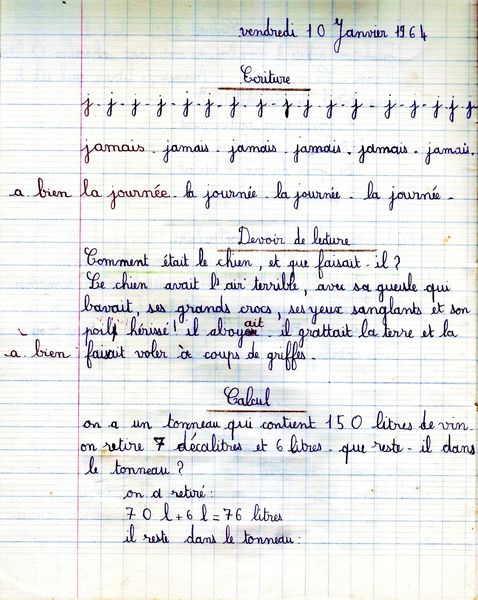 vendredi 10 Janvier 1964
Ecriture
j - j - j - j - j - j - j - j - j - j - j - j - j - j - j - j - j
jamais - jamais - jamais - jamais - jamais - jamais.
a bien la journée - la journée - la journée - la journée -
Devoir de lecture
Comment était le chien, et que faisait-il ?
Le chien avait l'air terrible, avec sa gueule qui
bavait, ses grands crocs, ses yeux sanglants et son
poil hérissé ! il aboyait - il grattait la terre et la
a bien faisait voler à coups de griffes -
Calcul
on a un tonneau qui contient 150 litres de vin -
on retire 7 décalitres et 6 litres - que reste-il dans
le tonneau ?
on a retiré :
70 l + 6 l = 76 litres
il reste dans le tonneau :